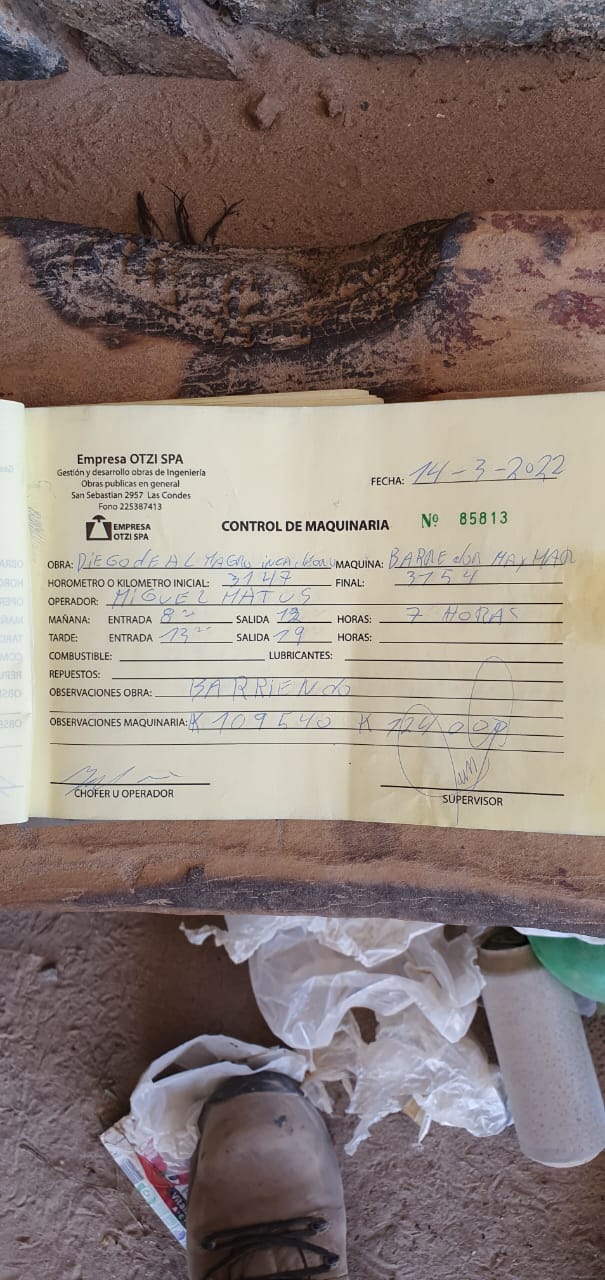 Empresa OTZI SPA
Gestión y desarrollo obras de Ingeniería
Obras publicas en general
San Sebastian 2957 Las Condes
Fono 225387413
EMPRESA
OTZI SPA
FECHA: 14-3-2022
CONTROL DE MAQUINARIA Nº 85813
OBRA: DiEGO dE ALMAGRO MAQUINA: BARREdoR
HOROMETRO O KILOMETRO INICIAL: 3147 FINAL: 3154
OPERADOR: MIGUEL MATUS
MAÑANA: ENTRADA 8 SALIDA 12 HORAS: 7 HORAS
TARDE: ENTRADA 13 SALIDA 19 HORAS:
COMBUSTIBLE: LUBRICANTES:
REPUESTOS:
OBSERVACIONES OBRA: BARRiENdo
OBSERVACIONES MAQUINARIA: K 109540 K
CHOFER U OPERADOR SUPERVISOR